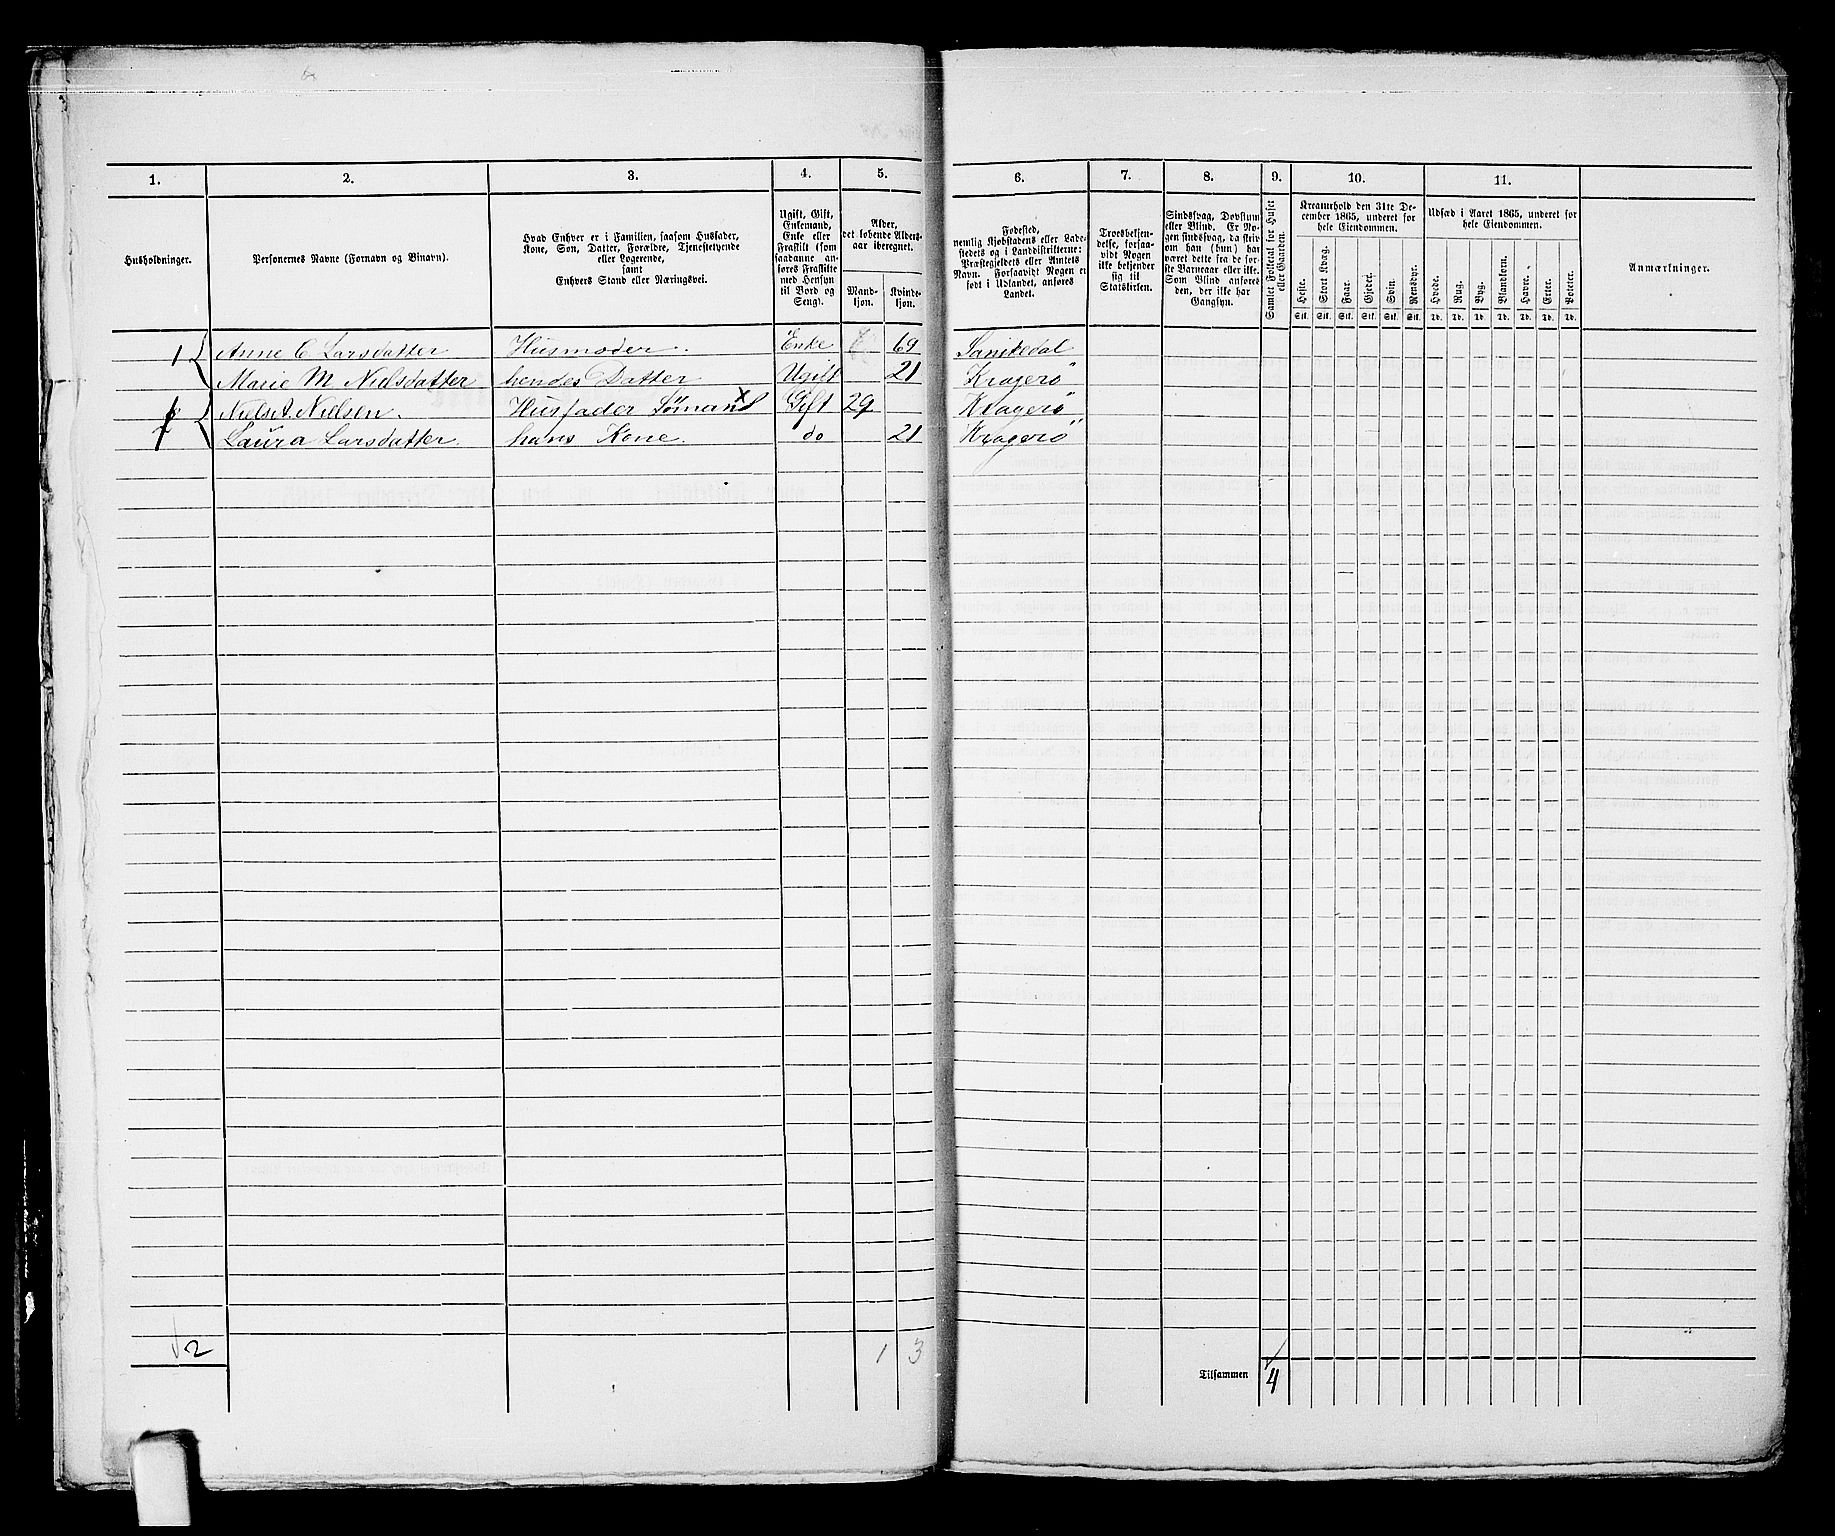 1. 2. 3. 4. 5. 6. 7. 8. 9. 10. 11.
Husholdninger.
Personernes Navne (Fornavn og Binavn).
Hvad Enhver er i Familien, saasom Husfader,
Kone, Søn, Datter, Forældre, Tjenestetyende
eller Logerende,
samt
Enhvers Stand eller Næringsvei.
Ugift, Gift,
Enkemand,
Enke eller
Fraskilt (som
saadanne an-
føres Fraskilte
med Hensyn
til Bord og
Seng).
Alder,
det løbende Alders-
aar iberegnet.
Mand-
kjøn.
Kvinde-
kjøn.
Fødested,
nemlig Kjøbstadens eller Lade-
stedets og i Landdistrikterne:
Præstegjeldets eller Amtets
Navn. Forsaavidt Nogen er
født i Udlandet, anføres
Landet.
Troesbekjen-
delse, forsaa-
vidt Nogen
ikke bekjender
sig til
Statskirken.
Sindssvag, Døvstum
eller Blind. Er No-
gen sindssvag, da skriv
om han (hun) har
været dette fra de før-
ste Barneaar eller ikke.
Som Blind anføres
den, der ikke har
Gangsyn.
Samlet Folketal for Huset
eller Gaarden.
Kreaturhold den 31te De-
cember 1865, underet for
hele Eiendommen.
Heste. Stort Kvæg. Faar. Gjeder. Svin. Rensdyr.
Stk. Stk. Stk. Stk. Stk. Stk.
Udsæd i Aaret 1865, underet for
hele Eiendommen.
Hvede. Rug. Byg. Blandkorn. Havre. Erter. Poteter.
Td. Td. Td. Td. Td. Td. Td.
Anmærkninger.
1 Anne C Larsdatter Husmoder. Enke 69 Sanikedal
Marie M Nielsdatter hendes Datter Ugift 21 Kragerö
Niels A. Nielsen. Husfader Sömand Gift 29 Kragerö
Laura Larsdatter. hans Kone. do 21 Kragerö
2 1 3 Tilsammen 4